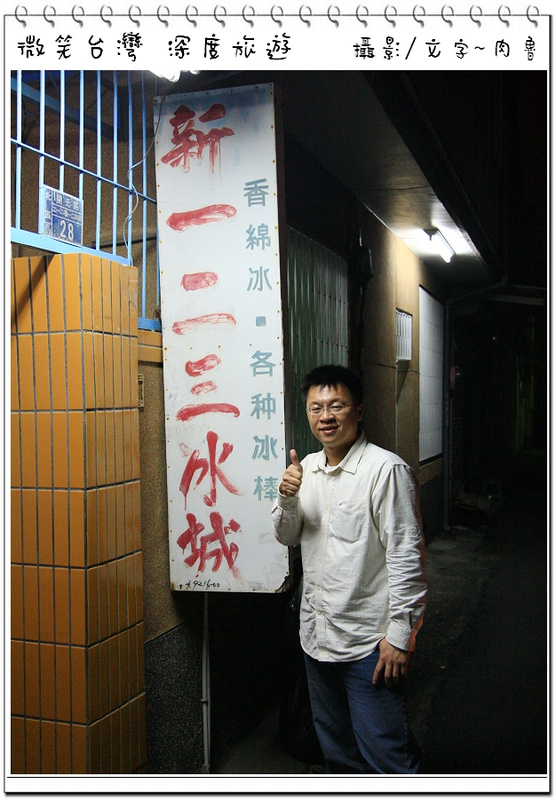 微笑台灣 深度旅遊 攝影/文字~肉魯
28
新一二三冰城
香綿冰．各种冰棒